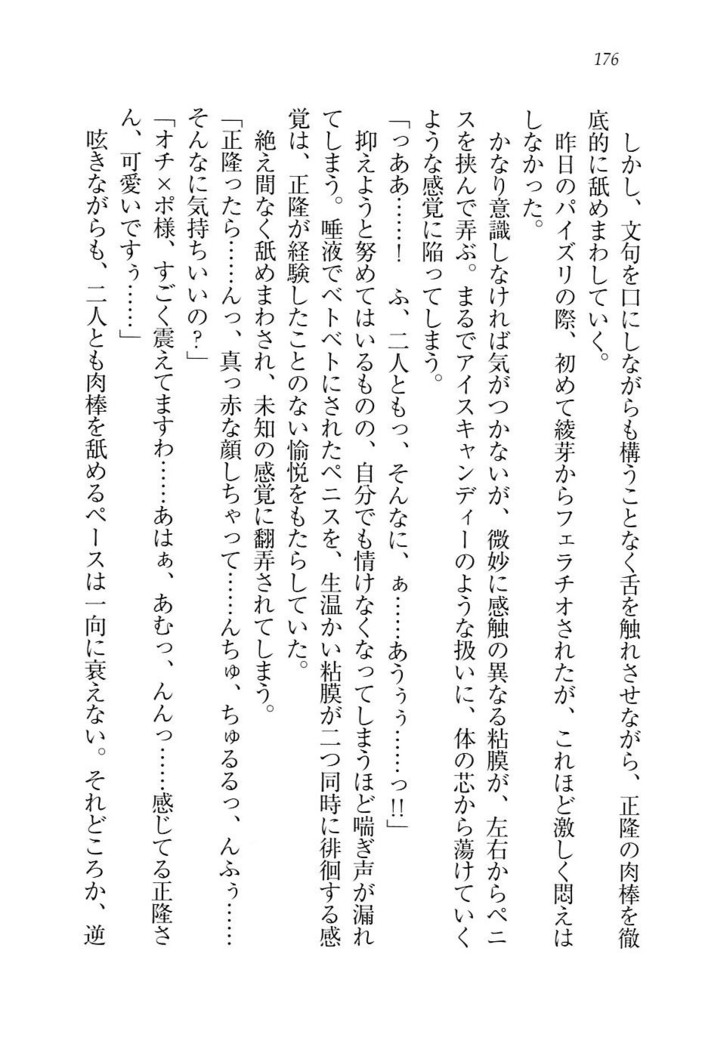 176
しかし、文句を口にしながらも構うことなく舌を触れさせながら、正隆の肉棒を徹
底的に舐めまわしていく。
昨日のパイズリの際、初めて綾芽からフェラチオされたが、これほど激しく悶えは
しなかった。
かなり意識しなければ気がつかないが、微妙に感触の異なる粘膜が、左右からペニ
スを挟んで弄ぶ。まるでアイスキャンディーのような扱いに、体の芯から蕩けていく
ような感覚に陥ってしまう。
「っああ……！　ふ、二人ともっ、そんなに、ぁ……あうぅぅ……っ!!」
抑えようと努めてはいるものの、自分でも情けなくなってしまうほど喘ぎ声が漏れ
てしまう。唾液でベトベトにされたペニスを、生温かい粘膜が二つ同時に徘徊する感
覚は、正隆が経験したことのない愉悦をもたらしていた。
絶え間なく舐めまわされ、未知の感覚に翻弄されてしまう。
「正隆ったら……んっ、真っ赤な顔しちゃって……んちゅ、ちゅるるっ、んふぅ……
そんなに気持ちいいの？」
「オチ×ポ様、すごく震えてますわ……あはぁ、あむっ、んんっ……感じてる正隆さ
ん、可愛いですぅ……」
呟きながらも、二人とも肉棒を舐めるペースは一向に衰えない。それどころか、逆